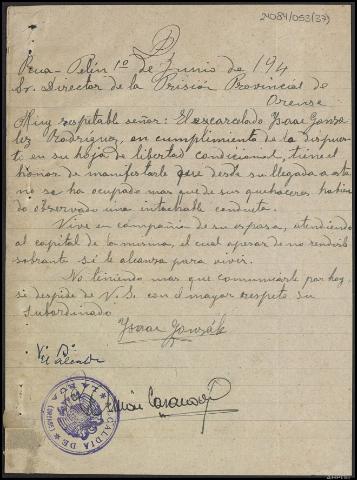 24084/053(37)
Pena-Petín 1º de Junio de 194
Sr. Director de la Prisión Provincial de
Orense
Muy respetable señor: El excarcelado Ysaac Gonzá
lez Rodríguez, en cumplimiento de lo dispues
to en su hoja de libertad condicional, tiene el
honor de manifestarle que desde su llegada a esta
no se ha ocupado mas que de sus quehaceres habien
do observado una intachable conducta.
Vive en compañia de su esposa, atendiendo
al capital de la misma, el cual apesar de no rendirle
sobrante si le alcanza para vivir.
No teniendo mas que comunicarle por hoy
se despide de V. S. con el mayor respeto su
subordinado
Ysaac Gonzák
Vº Bº
El Alcalde
ALCALDIA DE